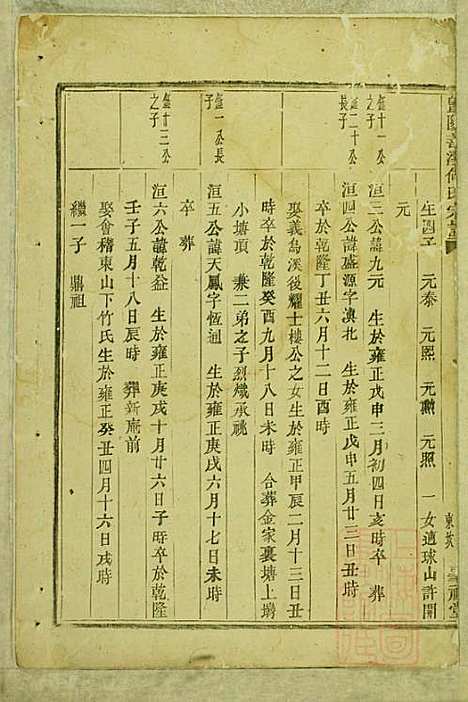 暨陽
何氏宗譜
生四子 元泰 元熙 元勳 元照 一女適球山許開
元
鎰十一公之子
洹三公諱九元 生於雍正戊申二月初四日亥時卒 葬
鎰二十公長子
洹四公諱盛源字滇北 生於雍正戊申五月廿三日丑時
卒於乾隆丁丑六月十二日酉時
娶義烏溪後耀士樓公之女生於雍正甲辰二月十三日丑
時卒於乾隆癸酉九月十八日未時 合葬金家裏塘上塝
小塘頂 兼二弟之子烈熾承祧
鎰一公長子
洹五公諱天鳳字恆通 生於雍正庚戌六月十七日未時
卒 葬
鎰廿三公之子
洹六公諱乾益 生於雍正庚戌十月廿六日子時卒於乾隆
壬子五月十八日辰時 葬新廟前
娶會稽東山下竹氏生於雍正癸丑四月十六日戌時
繼一子 鼎祖